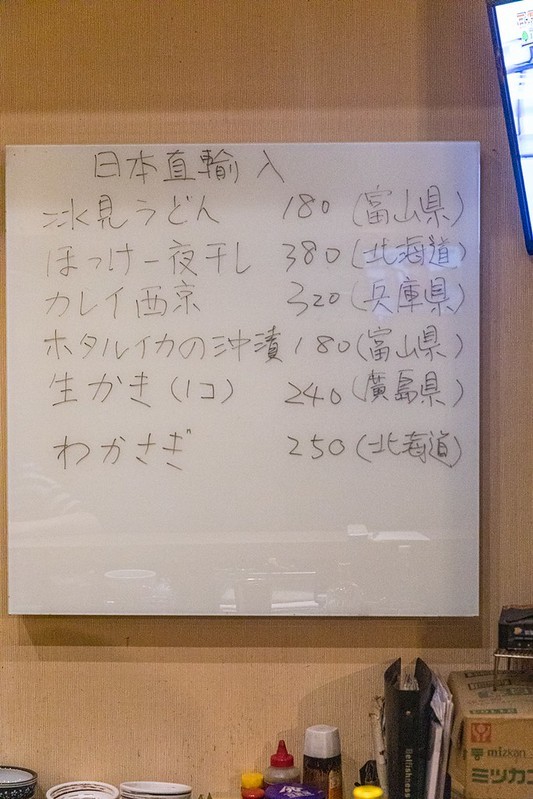 日本直輸入
氷見うどん 180 (富山県)
ほっけ一夜干し 380 (北海道)
カレイ西京 320 (兵庫県)
ホタルイカの沖漬 180 (富山県)
生かき (1コ) 240 (廣島県)
わかさぎ 250 (北海道)
mizkan
ミツカン